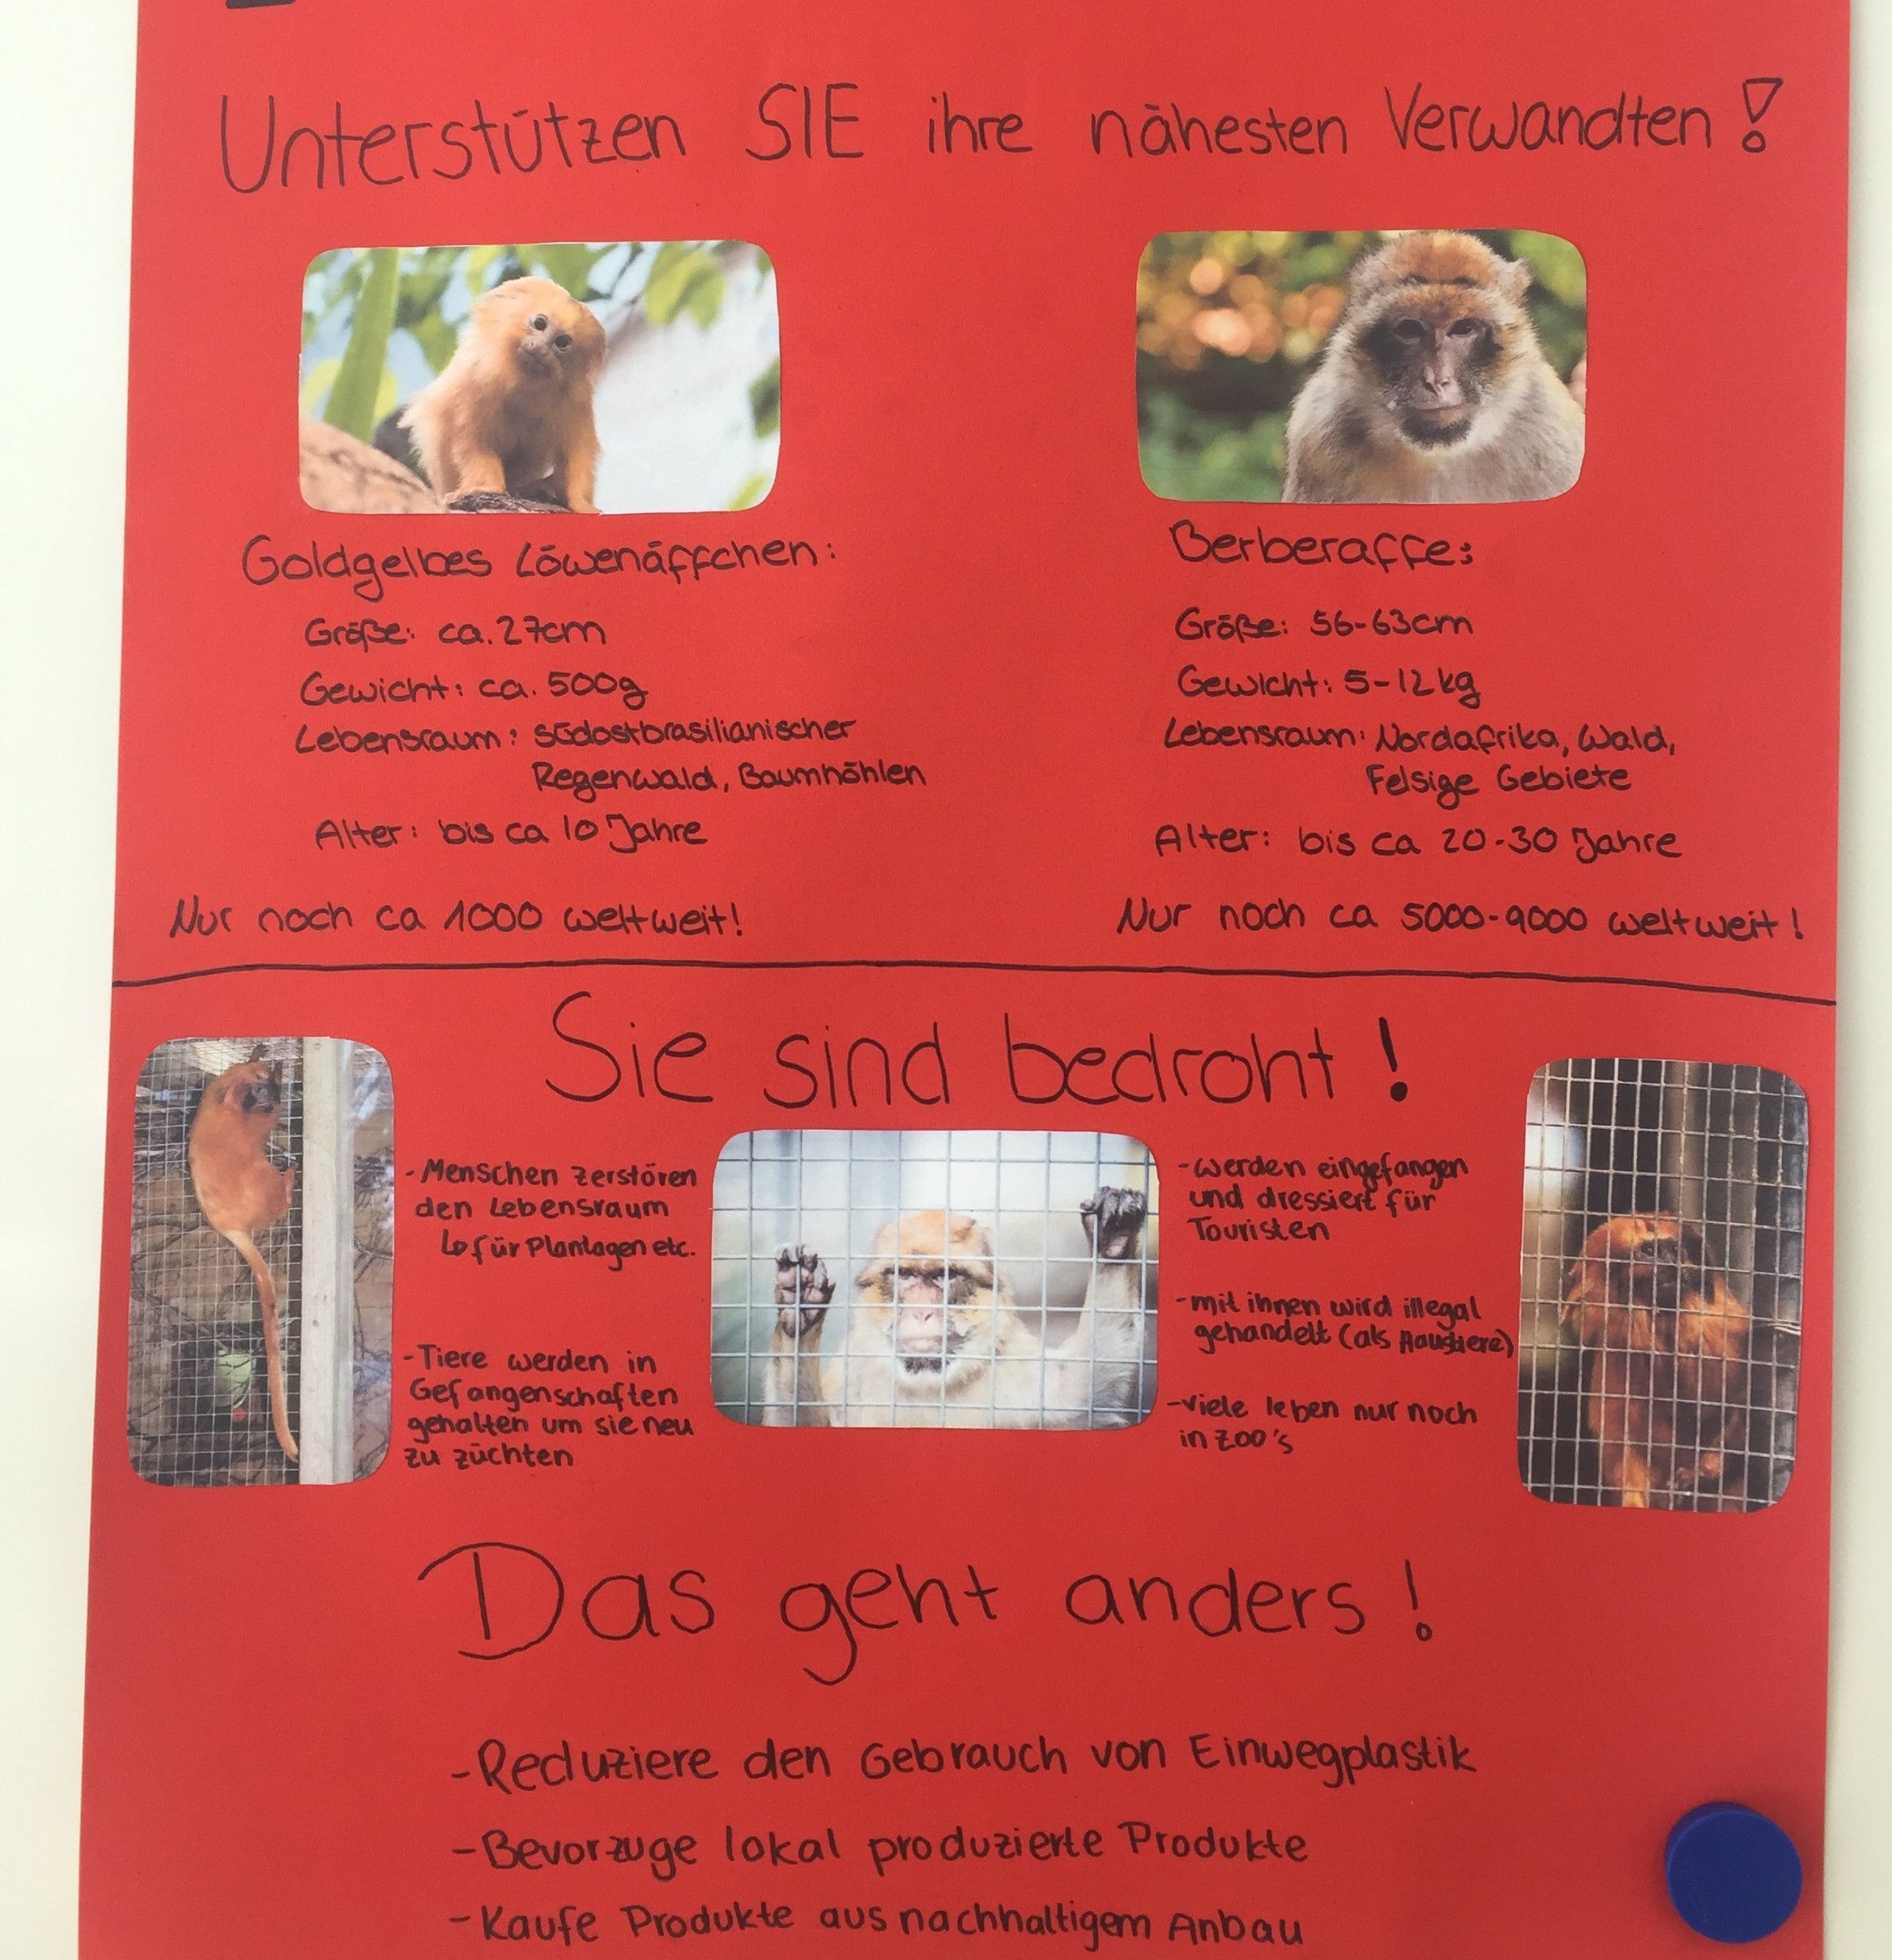 Unterstützen SIE ihre nähesten Verwandten!
Goldgelbes Löwenäffchen:
Größe: ca. 27cm
Gewicht: ca. 500g
Lebensraum: südostbrasilianischer
Regenwald, Baumhöhlen
Alter: bis ca 10 Jahre
Nur noch ca 1000 weltweit!
Berberaffe:
Größe: 56-63cm
Gewicht: 5-12kg
Lebensraum: Nordafrika, Wald,
Felsige Gebiete
Alter: bis ca 20-30 Jahre
Nur noch ca 5000-9000 weltweit!
Sie sind bedroht!
-Menschen zerstören
den Lebensraum
↳ für Plantagen etc.
-Tiere werden in
Gefangenschaften
gehalten um sie neu
zu züchten
-werden eingefangen
und dressiert für
Touristen
-mit ihnen wird illegal
gehandelt (als Haustiere)
-viele leben nur noch
in Zoo's
Das geht anders!
-Reduziere den Gebrauch von Einwegplastik
-Bevorzuge lokal produzierte Produkte
-Kaufe Produkte aus nachhaltigem Anbau